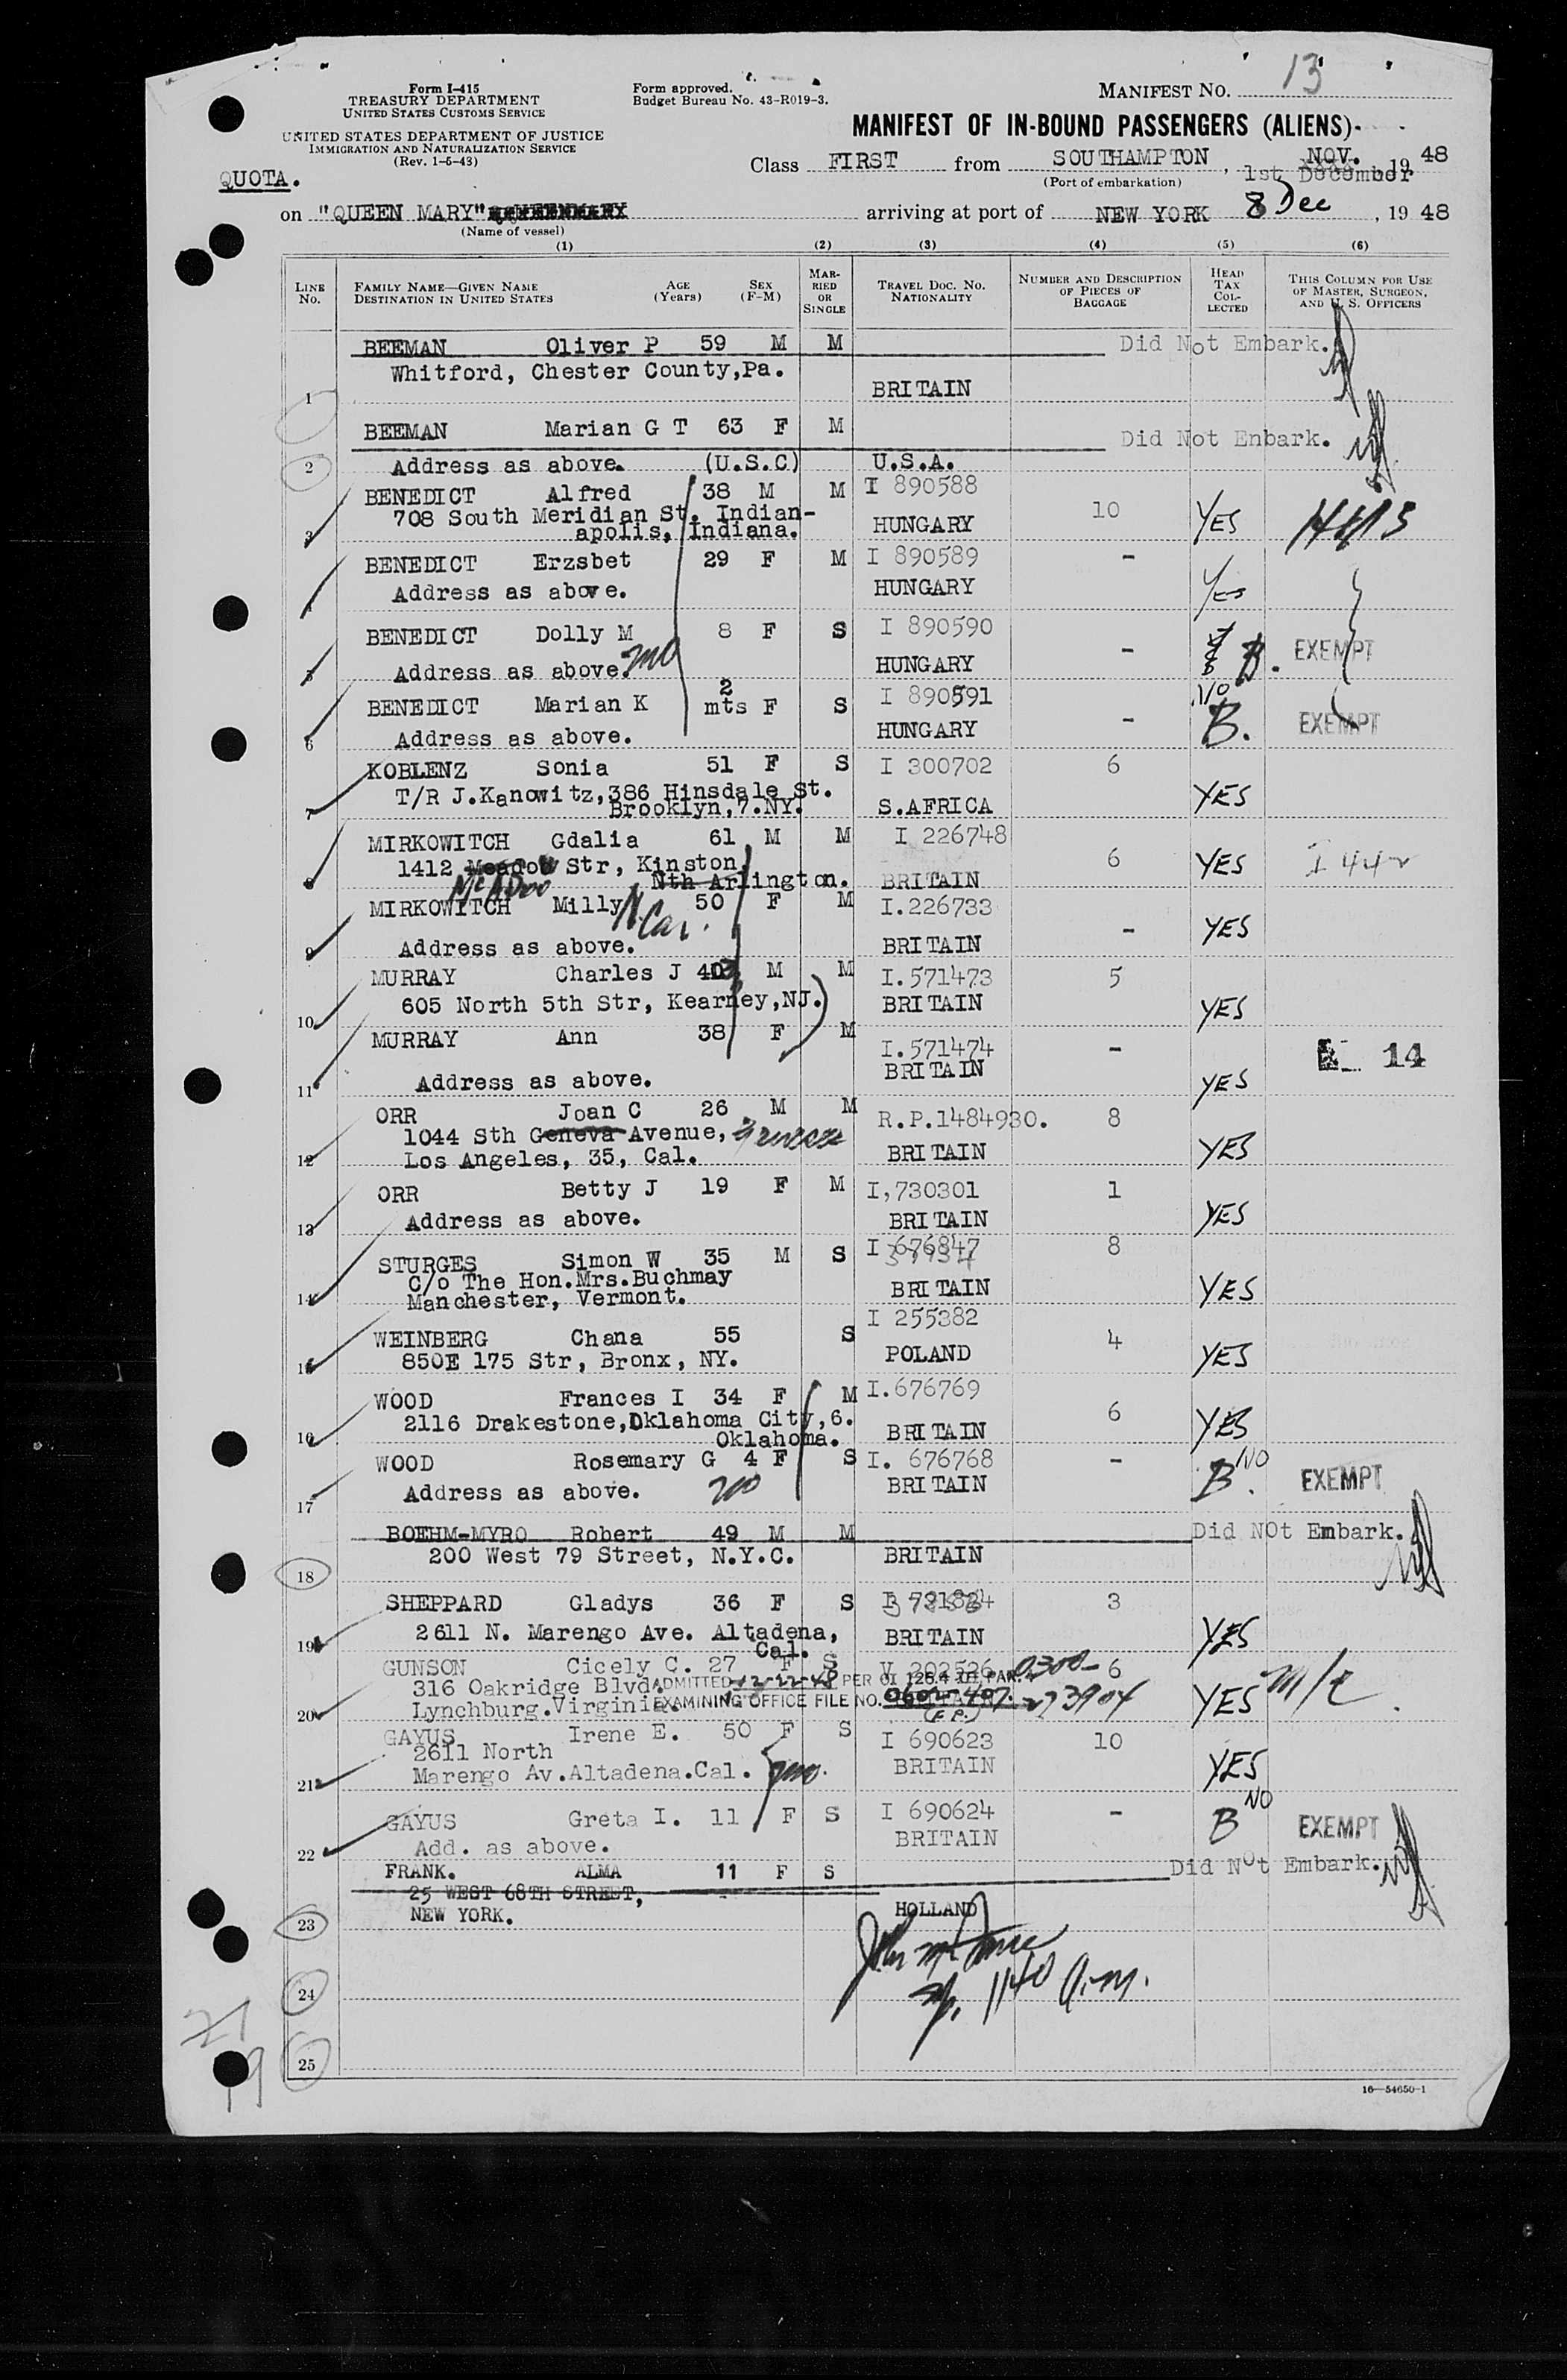 Form I-415
TREASURY DEPARTMENT
UNITED STATES CUSTOMS SERVICE
UNITED STATES DEPARTMENT OF JUSTICE
IMMIGRATION AND NATURALIZATION SERVICE
(Rev. 1-5-43)
Form approved.
Budget Bureau No. 43-R019-3.
MANIFEST NO. 13
MANIFEST OF IN-BOUND PASSENGERS (ALIENS)
QUOTA.
Class FIRST from SOUTHAMPTON, NOV. 1948
(Port of embarkation) 1st December
on "QUEEN MARY" arriving at port of NEW YORK 8 Dec, 1948
(Name of vessel)
(1) (2) (3) (4) (5) (6)
LINE No. FAMILY NAME—GIVEN NAME DESTINATION IN UNITED STATES AGE (Years) SEX (F-M) MARRIED OR SINGLE TRAVEL DOC. NO. NATIONALITY NUMBER AND DESCRIPTION OF PIECES OF BAGGAGE HEAD TAX COLLECTED THIS COLUMN FOR USE OF MASTER, SURGEON, AND U. S. OFFICERS
BEEMAN Oliver P 59 M M Did Not Embark.
Whitford, Chester County,Pa.
1 BRITAIN
BEEMAN Marian G T 63 F M
Did Not Enbark.
2 Address as above. (U.S.C) U.S.A.
BENEDICT Alfred 38 M M I 890588
708 South Meridian St. Indian- 10 YES
3 apolis, Indiana. HUNGARY
BENEDICT Erzsbet 29 F M I 890589 -
4 Address as above. HUNGARY Yes
BENEDICT Dolly M 8 F S I 890590
5 Address as above. HUNGARY - B. EXEMPT
2
BENEDICT Marian K mts F S I 890591 NO
6 Address as above. HUNGARY - B. EXEMPT
KOBLENZ Sonia 51 F S I 300702 6
T/R J.Kanowitz,386 Hinsdale St. YES
7 Brooklyn,7.NY. S.AFRICA
MIRKOWITCH Gdalia 61 M M I 226748
1412 Meadow Str, Kinston, 6 YES I 442
8 McAdoo Nth Arlington. BRITAIN
MIRKOWITCH Milly 50 F M I.226733
N. Car.
9 Address as above. BRITAIN - YES
MURRAY Charles J 43 M M I.571473 5
10 605 North 5th Str, Kearney,NJ. BRITAIN YES
MURRAY Ann 38 F M I.571474 -
BRITAIN 14
11 Address as above. YES
ORR Joan C 26 M M R.P.1484930. 8
1044 Sth Geneva Avenue,
12 Los Angeles, 35, Cal. BRITAIN YES
ORR Betty J 19 F M I,730301 1
13 Address as above. BRITAIN YES
STURGES Simon W 35 M S I 676847 8
C/o The Hon.Mrs.Buchmay
14 Manchester, Vermont. BRITAIN YES
I 255382
WEINBERG Chana 55 S 4
15 850E 175 Str, Bronx, NY. POLAND YES
WOOD Frances I 34 F M I.676769
2116 Drakestone,Dklahoma City,6. 6
16 Oklahoma. BRITAIN YES
WOOD Rosemary G 4 F S I. 676768 - NO
17 Address as above. BRITAIN B. EXEMPT
BOEHM-MYRO Robert 49 M M Did NOt Embark.
18 200 West 79 Street, N.Y.C. BRITAIN
SHEPPARD Gladys 36 F S 3
19 2611 N. Marengo Ave. Altadena, BRITAIN YES
Cal.
GUNSON Cicely C. 27 F S V 202526 0300- 6
316 Oakridge Blvd. ADMITTED 12-22-48 PER OI 126.4 PAR.
20 Lynchburg.Virginia. EXAMINING OFFICE FILE NO. YES
GAYUS Irene E. 50 F S I 690623 10
2611 North
21 Marengo Av.Altadena.Cal. BRITAIN YES
GAYUS Greta I. 11 F S I 690624 - NO
B EXEMPT
22 Add. as above. BRITAIN
FRANK. ALMA 11 F S Did NOt Embark.
25 WEST 68TH STREET,
23 NEW YORK. HOLLAND
1140 a.m.
24
25
16—54650-1